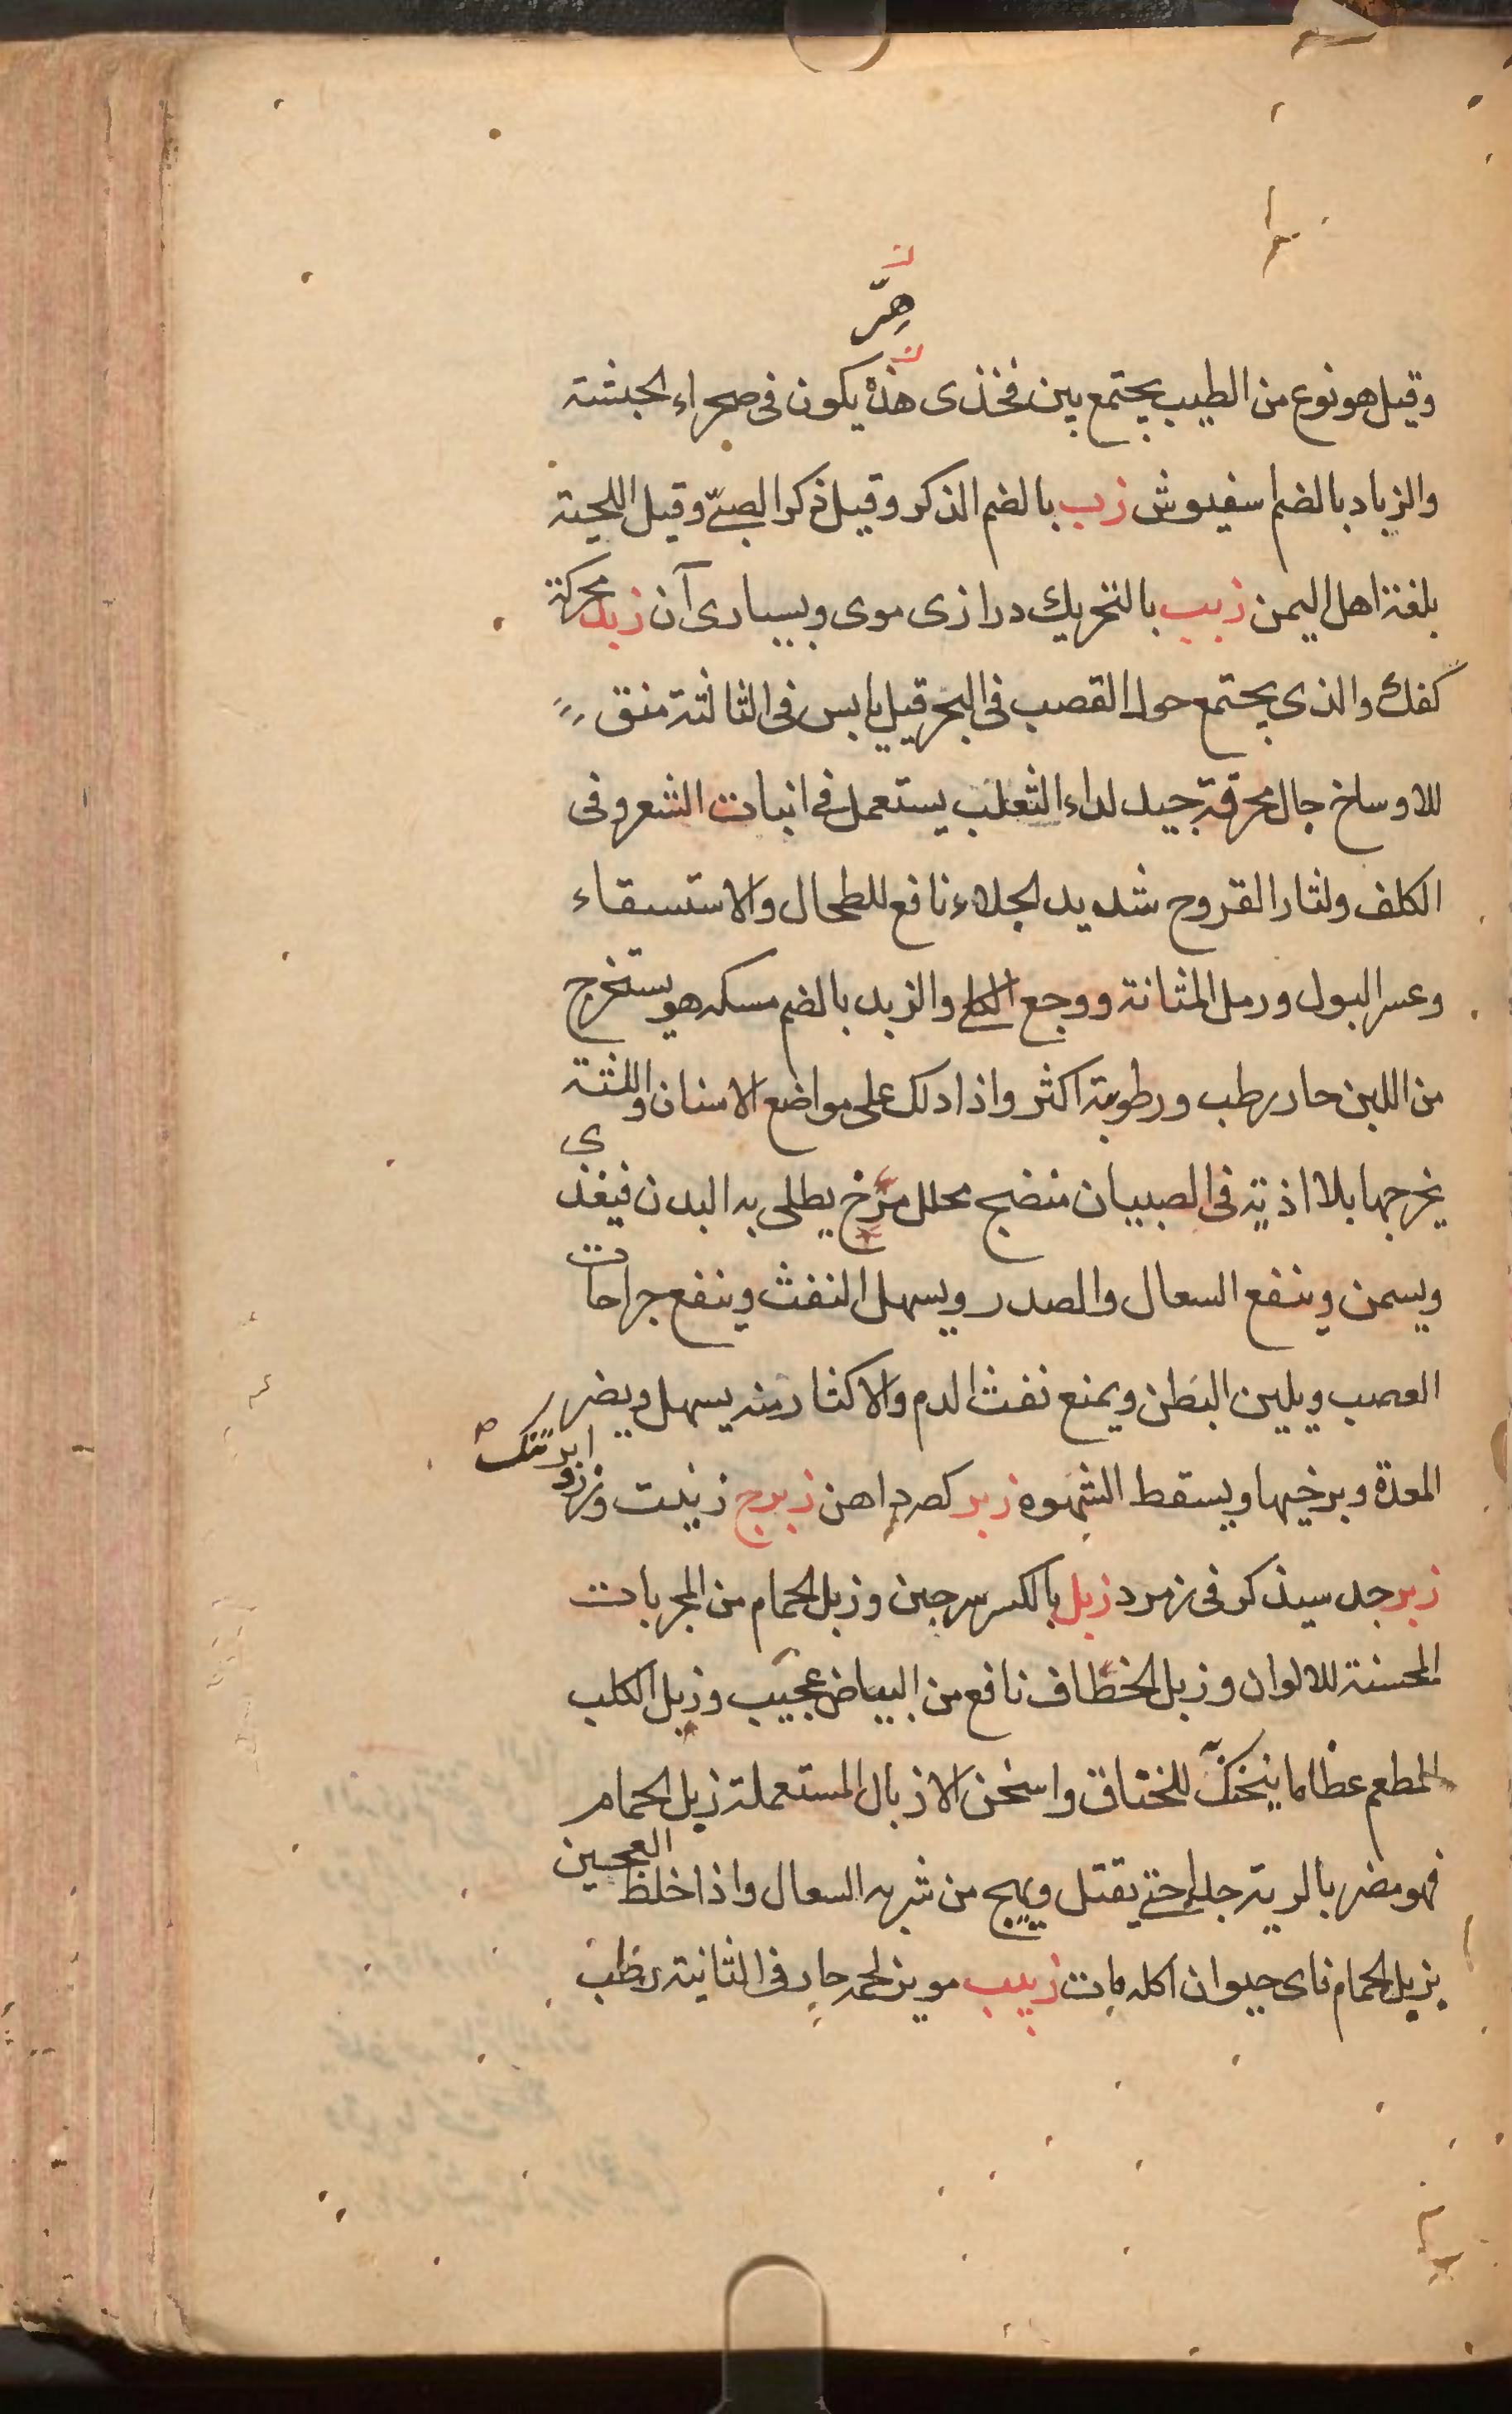 هِرّ
وقيل هو نوع من الطيب يجتمع بين فخذى هذه يكون فى صحراء الحبشة
والزباد بالضم اسفيوش زب بالضم الذكر وقيل ذكر الصبىّ وقيل اللحية
بلغة اهل اليمن زبب بالتحريك درازى موى وبسيارى آن زبد محركة
كفك والذى يجتمع حول القصب فى البحر قيل يابس فى الثالثة منق
للاوساخ جال محرقة جيد لداء الثعلب يستعمل فى انبات الشعر وفى
الكلف ولثار القروح شديد الجلاء نافع للطحال والاستسقاء
وعسر البول ورمل المثانة ووجع الكلى والزبد بالضم مسكه هو يستخرج
من اللبن حار رطب ورطوبته اكثر واذا دلك على مواضع الاسنان واللثة
يخرجها بلا اذية فى الصبيان منضج محلل مرخ يطلى به البدن فيغذى
ويسمن وينفع السعال والصدر ويسهل النفث وينفع جراحات
العصب ويلين البطن ويمنع نفث الدم والاكثار منه يسهل ويضر
المعدة ويرخيها ويسقط الشهوه زبر كصرد اهن زبرج زينت وزرو ابر تنك
زبرجد سيذكر فى زمرد زبل بالكسر سرجين وزبل الحمام من المجربات
المحسنة للالوان وزبل الخطاف نافع من البياض عجيب وزبل الكلب
المطعم عظاما يتحنك للخناق واسخن الازبال المستعملة زبل الحمام
فهو مضر بالرية جدا حتى يقتل ويهيج من شربه السعال واذا خلط العجين
بزبل الحمام فاى حيوان اكله مات زبيب مويز لحمه حار فى الثانية رطب